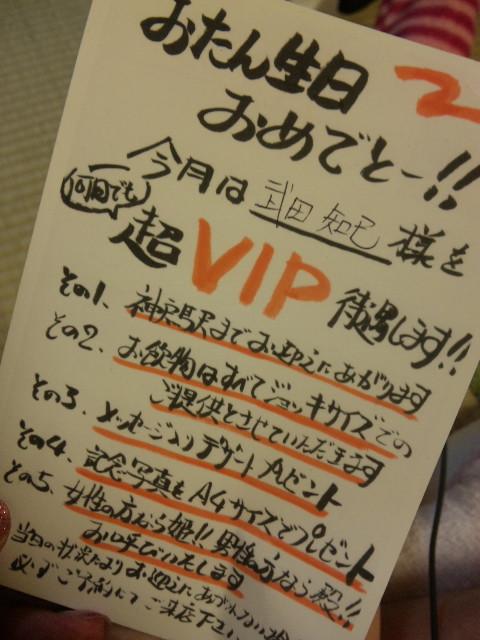 おたん生日
おめでとー!!
今月は 武田 知己 様を
何回でも
超VIP待遇します!!
その1、神戸駅までお迎えにあがります
その2、お飲物はすべてジョッキサイズでの
ご提供とさせていただきます
その3、メッセージ入りデザートプレゼント
その4、記念写真をA4サイズでプレゼント
その5、女性の方なら姫!!男性の方なら殿!!
お呼びいたします
当日の状況によりお迎えにあがれない
必ずご予約してご来店下さい